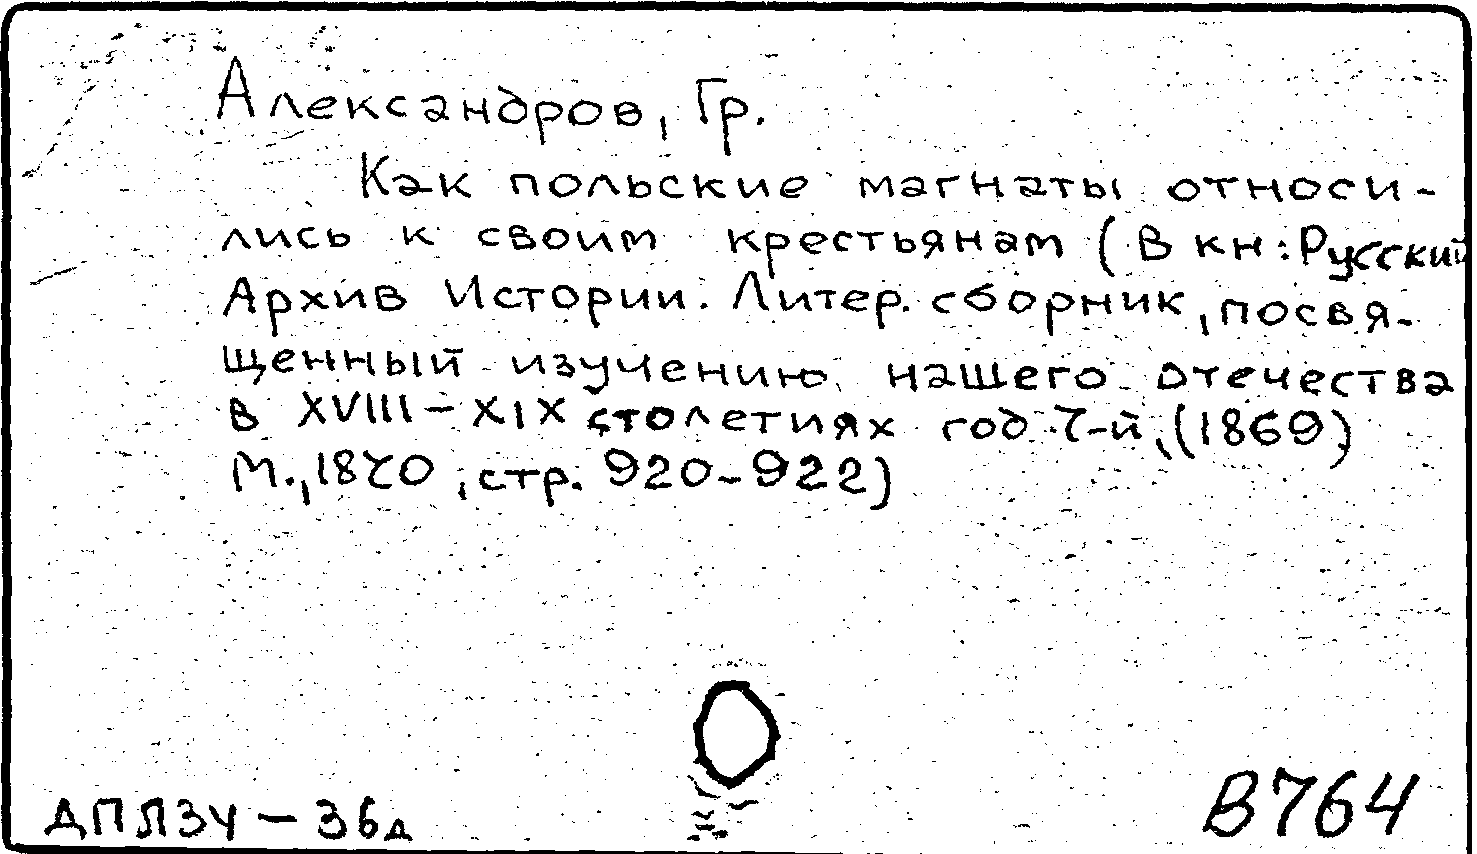 Александров, Гр.
Как польские магнаты относи-
лись к своим крестьянам (В кн: Русский
Архив Истории. Литер. сборник, посвя-
щенный изучению нашего отечества
в XVIII – XIX столетиях год 7-й, (1869)
М., 1870, стр. 920-922)
ДПЛЗУ – 36д
В764